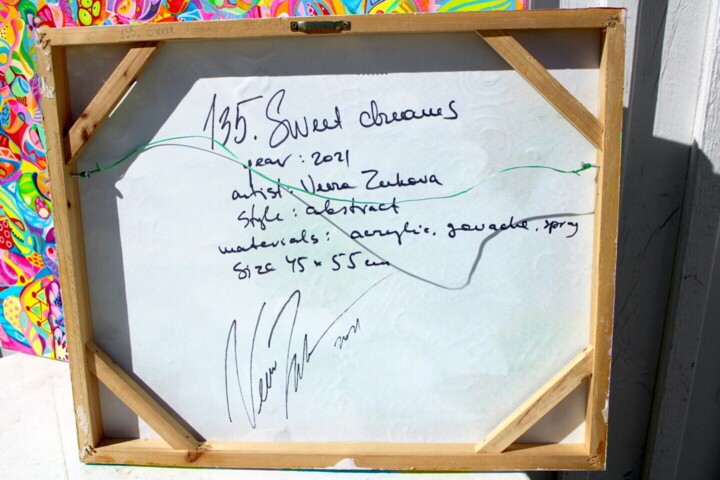 135. Sweet dreams
135. Sweet dreams
year: 2021
artist: Vera Zukova
style: abstract
materials: acrylic, gouache, spray
size 45 x 55 cm
Vera
2021